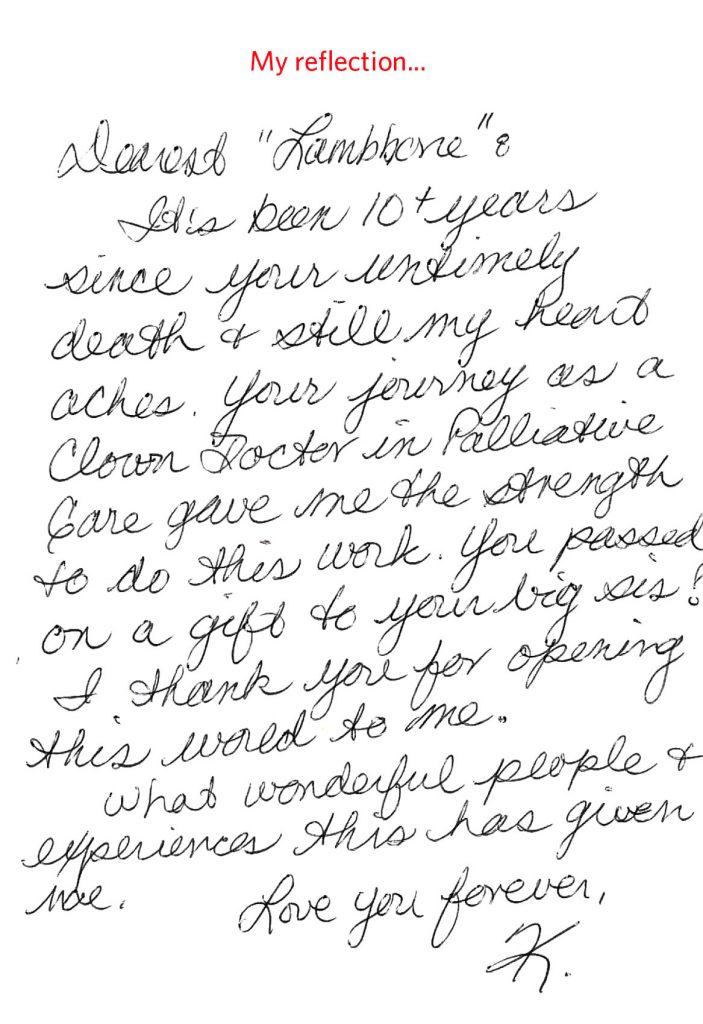 My reflection...
Dearest "Lambbone":
It's been 10+ years
since your untimely
death & still my heart
aches. Your journey as a
Clown Doctor in Palliative
Care gave me the strength
to do this work. You passed
on a gift to your big sis!
I thank you for opening
this world to me.
What wonderful people &
experiences this has given
me.
Love you forever,
K.